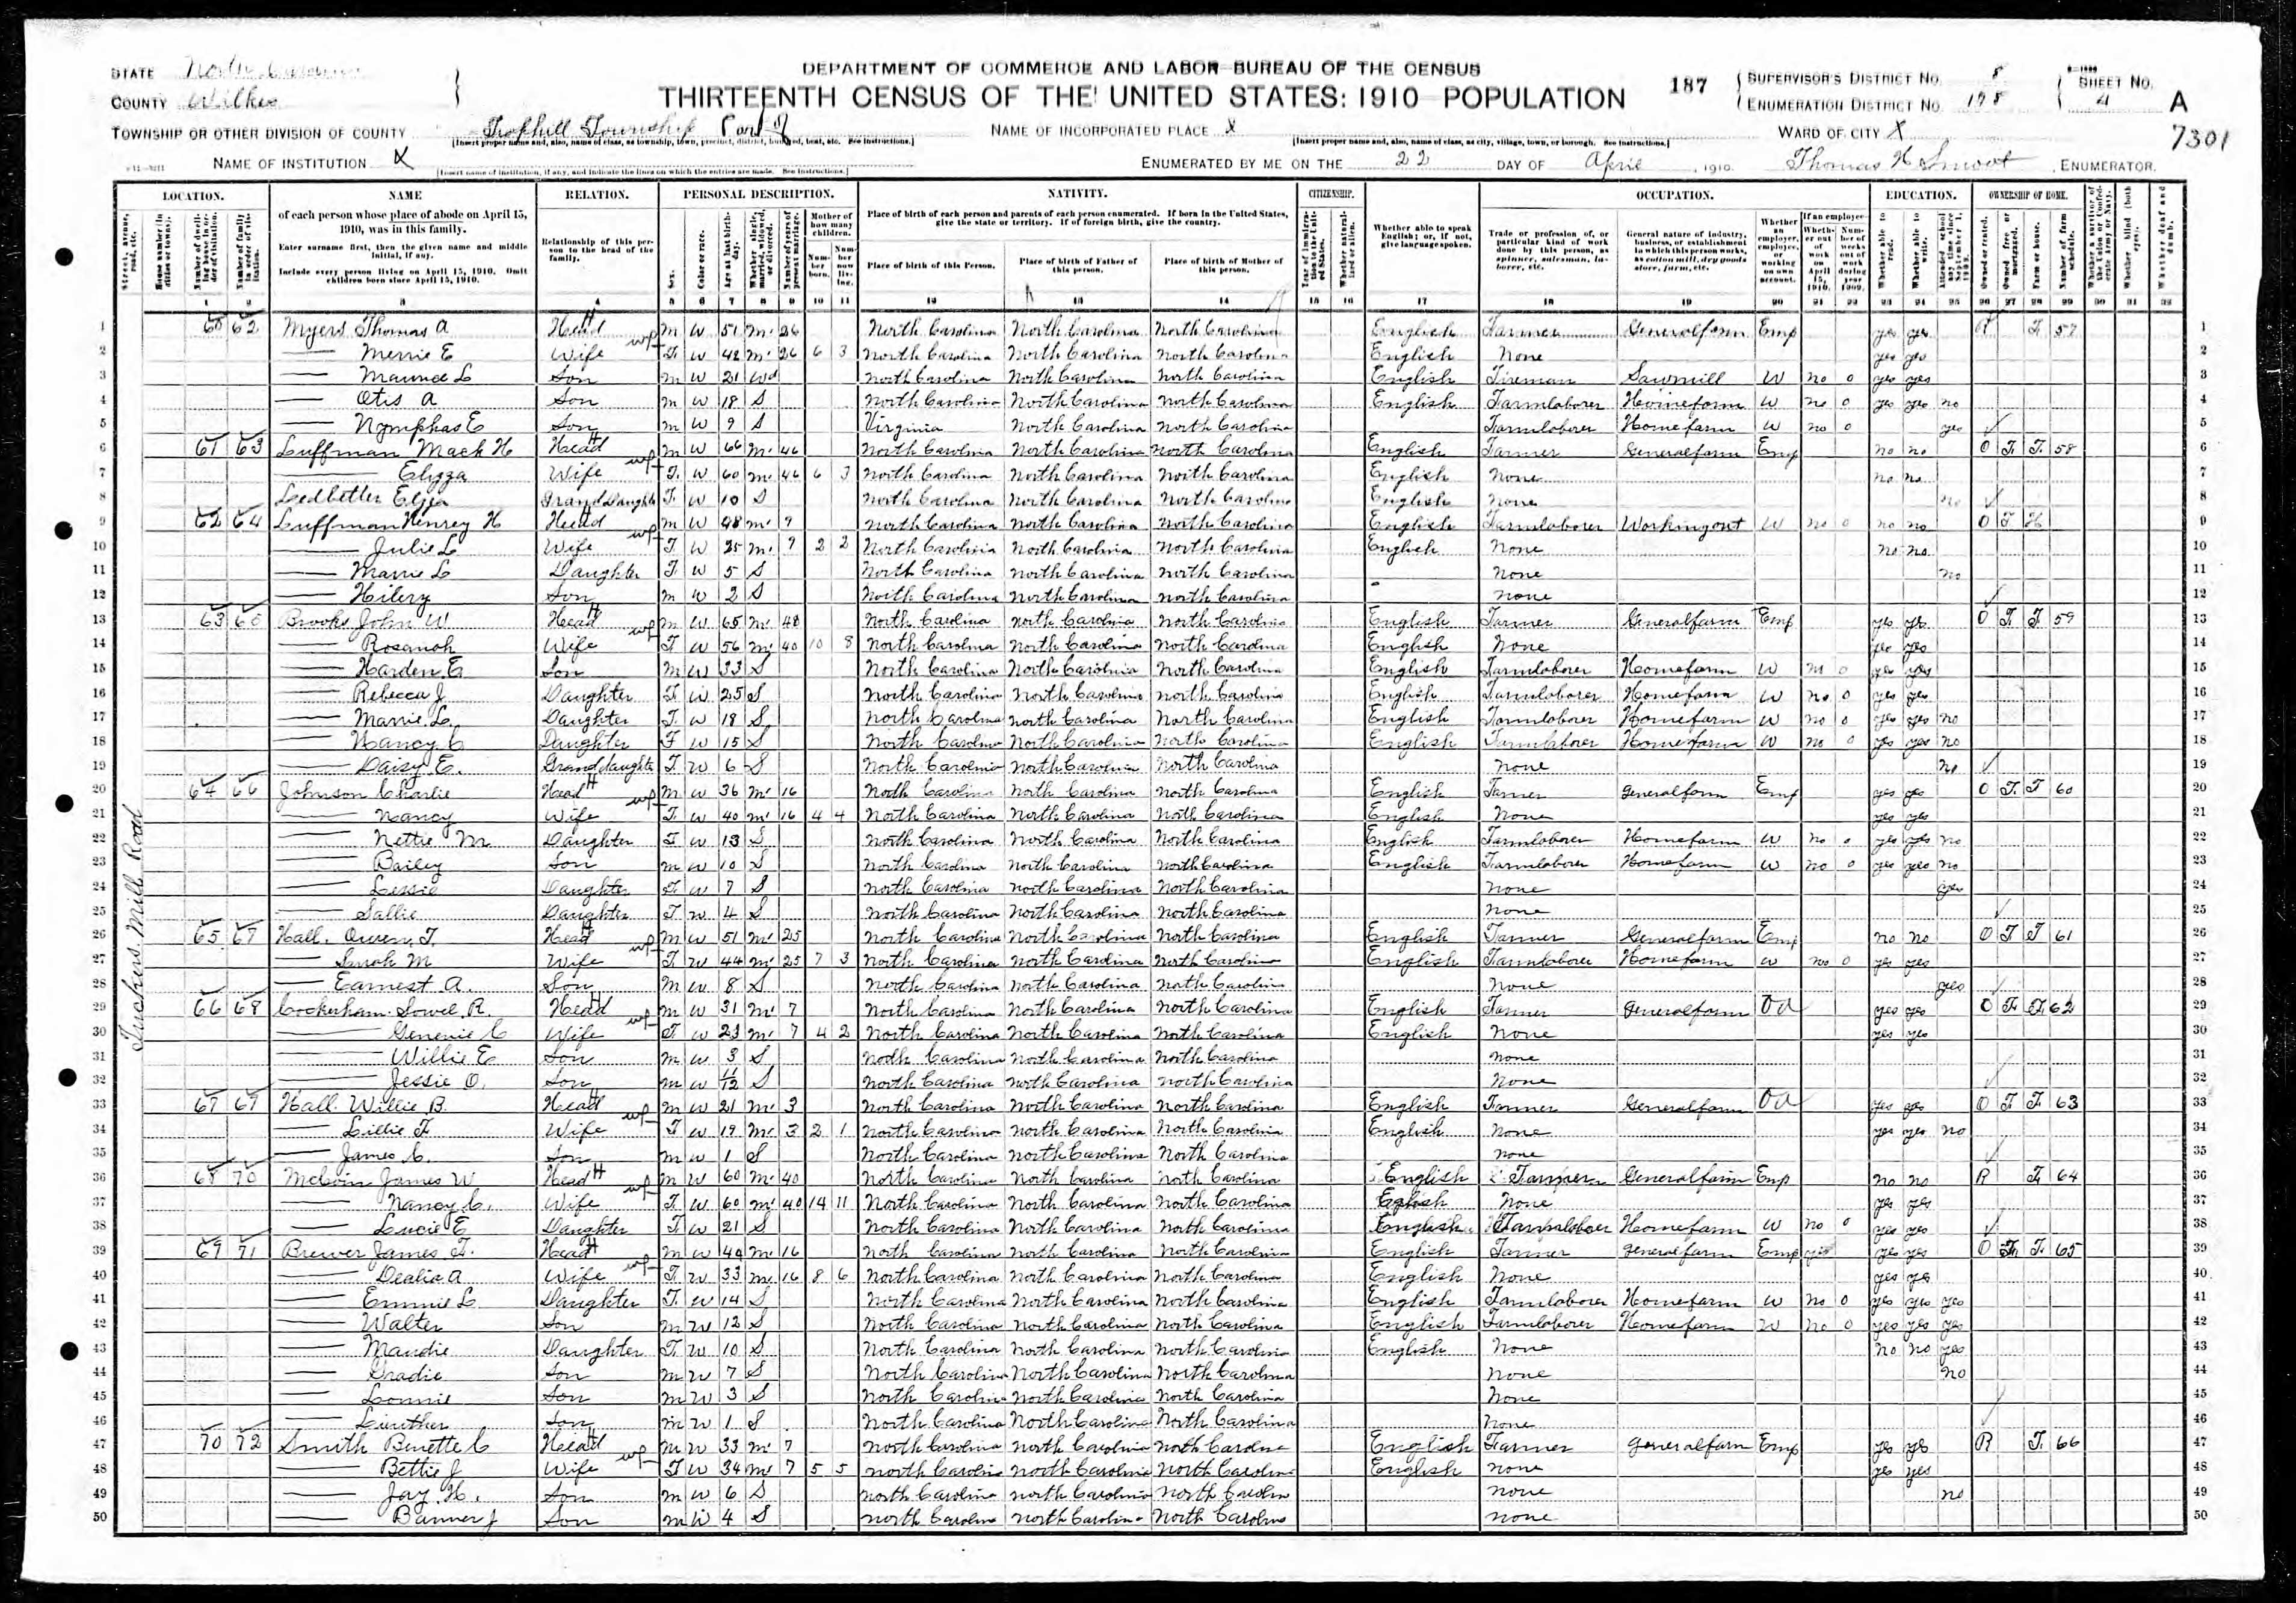 DEPARTMENT OF COMMERCE AND LABOR—BUREAU OF THE CENSUS
THIRTEENTH CENSUS OF THE UNITED STATES: 1910 POPULATION
STATE North Carolina
COUNTY Wilkes
TOWNSHIP OR OTHER DIVISION OF COUNTY Traphill Township Part of
[Insert proper name and, also, name of class, as township, town, precinct, district, hundred, beat, etc. See instructions.]
NAME OF INSTITUTION X
[Insert name of institution, if any, and indicate the lines on which the entries are made. See instructions.]
NAME OF INCORPORATED PLACE X
[Insert proper name and, also, name of class, as city, village, town, or borough. See instructions.]
ENUMERATED BY ME ON THE 22 DAY OF April, 1910. Thomas H Smoot, ENUMERATOR.
187
SUPERVISOR'S DISTRICT No. 8
ENUMERATION DISTRICT No. 178
SHEET No. 4 A
WARD OF CITY X
7301
LOCATION. NAME RELATION. PERSONAL DESCRIPTION. NATIVITY. CITIZENSHIP. OCCUPATION. EDUCATION. OWNERSHIP OF HOME.
of each person whose place of abode on April 15, 1910, was in this family.
Enter surname first, then the given name and middle initial, if any.
Include every person living on April 15, 1910. Omit children born since April 15, 1910.
Relationship of this person to the head of the family.
Place of birth of each person and parents of each person enumerated. If born in the United States, give the state or territory. If of foreign birth, give the country.
Place of birth of this Person. Place of birth of Father of this person. Place of birth of Mother of this person.
Whether able to speak English; or, if not, give language spoken.
Trade or profession of, or particular kind of work done by this person, as spinner, salesman, laborer, etc.
General nature of industry, business, or establishment in which this person works, as cotton mill, dry goods store, farm, etc.
Tuckers Mill Road
1 60 62 Myers Thomas A Head M W 51 M1 26 North Carolina North Carolina North Carolina English Farmer General farm Emp yes yes R F 57
2 Merrie E Wife F W 42 M1 26 6 3 North Carolina North Carolina North Carolina English None yes yes
3 Maurice L Son M W 21 Wd North Carolina North Carolina North Carolina English Fireman Sawmill W no 0 yes yes
4 Otis A Son M W 18 S North Carolina North Carolina North Carolina English Farmlaborer Home farm W no 0 yes yes no
5 Nymphas E Son M W 9 S Virginia North Carolina North Carolina Farmlaborer Home farm W no 0 yes
6 61 63 Luffman Mack H Head M W 66 M1 46 North Carolina North Carolina North Carolina English Farmer General farm Emp no no O F F 58
7 Elizza Wife F W 60 M1 46 6 3 North Carolina North Carolina North Carolina English None no no
8 Ledbetter Elzia Grand Daughter F W 10 S North Carolina North Carolina North Carolina English None no
9 62 64 Luffman Henrey H Head M W 48 M1 9 North Carolina North Carolina North Carolina English Farmlaborer Working out W no 0 no no O F H
10 Julie L Wife F W 35 M1 9 2 2 North Carolina North Carolina North Carolina English None no no
11 Marrie L Daughter F W 5 S North Carolina North Carolina North Carolina None no
12 Hilery Son M W 2 S North Carolina North Carolina North Carolina None
13 63 65 Brooks John W Head M W 65 M1 40 North Carolina North Carolina North Carolina English Farmer General farm Emp yes yes O F F 59
14 Rosanah Wife F W 56 M1 40 10 8 North Carolina North Carolina North Carolina English None yes yes
15 Harden E Son M W 33 S North Carolina North Carolina North Carolina English Farmlaborer Home farm W no 0 yes yes
16 Rebecca J Daughter F W 25 S North Carolina North Carolina North Carolina English Farmlaborer Home farm W no 0 yes yes
17 Marrie L. Daughter F W 18 S North Carolina North Carolina North Carolina English Farmlaborer Home farm W no 0 yes yes no
18 Nancy C Daughter F W 15 S North Carolina North Carolina North Carolina English Farmlaborer Home farm W no 0 yes yes no
19 Daisy E. Grand daughter F W 6 S North Carolina North Carolina North Carolina None no
20 64 66 Johnson Charlie Head M W 36 M1 16 North Carolina North Carolina North Carolina English Farmer General farm Emp yes yes O F F 60
21 Nancy Wife F W 40 M1 16 4 4 North Carolina North Carolina North Carolina English None yes yes
22 Nettie M Daughter F W 13 S North Carolina North Carolina North Carolina English Farmlaborer Home farm W no 0 yes yes no
23 Bailey Son M W 10 S North Carolina North Carolina North Carolina English Farmlaborer Home farm W no 0 yes yes no
24 Lessie Daughter F W 7 S North Carolina North Carolina North Carolina None yes
25 Sallie Daughter F W 4 S North Carolina North Carolina North Carolina None
26 65 67 Hall. Owen. T. Head M W 51 M1 25 North Carolina North Carolina North Carolina English Farmer General farm Emp no no O F F 61
27 Sarah M Wife F W 44 M1 25 7 3 North Carolina North Carolina North Carolina English Farmlaborer Home farm W no 0 yes yes
28 Earnest A. Son M W 8 S North Carolina North Carolina North Carolina None yes
29 66 68 Cockerham Sowel R. Head M W 31 M1 7 North Carolina North Carolina North Carolina English Farmer General farm OA yes yes O F F 62
30 Generie C Wife F W 23 M1 7 4 2 North Carolina North Carolina North Carolina English None yes yes
31 Willie E Son M W 3 S North Carolina North Carolina North Carolina None
32 Jessie O. Son M W 11/12 S North Carolina North Carolina North Carolina None
33 67 69 Hall Willie B. Head M W 21 M1 3 North Carolina North Carolina North Carolina English Farmer General farm OA yes yes O F F 63
34 Lillie F Wife F W 19 M1 3 2 1 North Carolina North Carolina North Carolina English None yes yes no
35 James C. Son M W 1 S North Carolina North Carolina North Carolina None
36 68 70 James W Head M W 60 M1 40 North Carolina North Carolina North Carolina English Farmer General farm Emp no no R F 64
37 Nancy C. Wife F W 60 M1 40 14 11 North Carolina North Carolina North Carolina English None yes yes
38 Lucie E Daughter F W 21 S North Carolina North Carolina North Carolina English Farmlaborer Home farm W no 0 yes yes
39 69 71 Brewer James F. Head M W 49 M1 16 North Carolina North Carolina North Carolina English Farmer General farm Emp yes yes O F F 65
40 Dealia A Wife F W 33 M1 16 8 6 North Carolina North Carolina North Carolina English None yes yes
41 Emmie L Daughter F W 14 S North Carolina North Carolina North Carolina English Farmlaborer Home farm W no 0 yes yes yes
42 Walter Son M W 12 S North Carolina North Carolina North Carolina English Farmlaborer Home farm W no 0 yes yes yes
43 Maudie Daughter F W 10 S North Carolina North Carolina North Carolina English None no no yes
44 Gradie Son M W 7 S North Carolina North Carolina North Carolina None no
45 Lonnie Son M W 3 S North Carolina North Carolina North Carolina None
46 Lieuther Son M W 1 S North Carolina North Carolina North Carolina None
47 70 72 Smith Benette C Head M W 33 M1 7 North Carolina North Carolina North Carolina English Farmer General farm Emp yes yes R F 66
48 Bettie J Wife F W 34 M1 7 5 5 North Carolina North Carolina North Carolina English None yes yes
49 Jay. H. Son M W 6 S North Carolina North Carolina North Carolina None no
50 Banner J Son M W 4 S North Carolina North Carolina North Carolina None